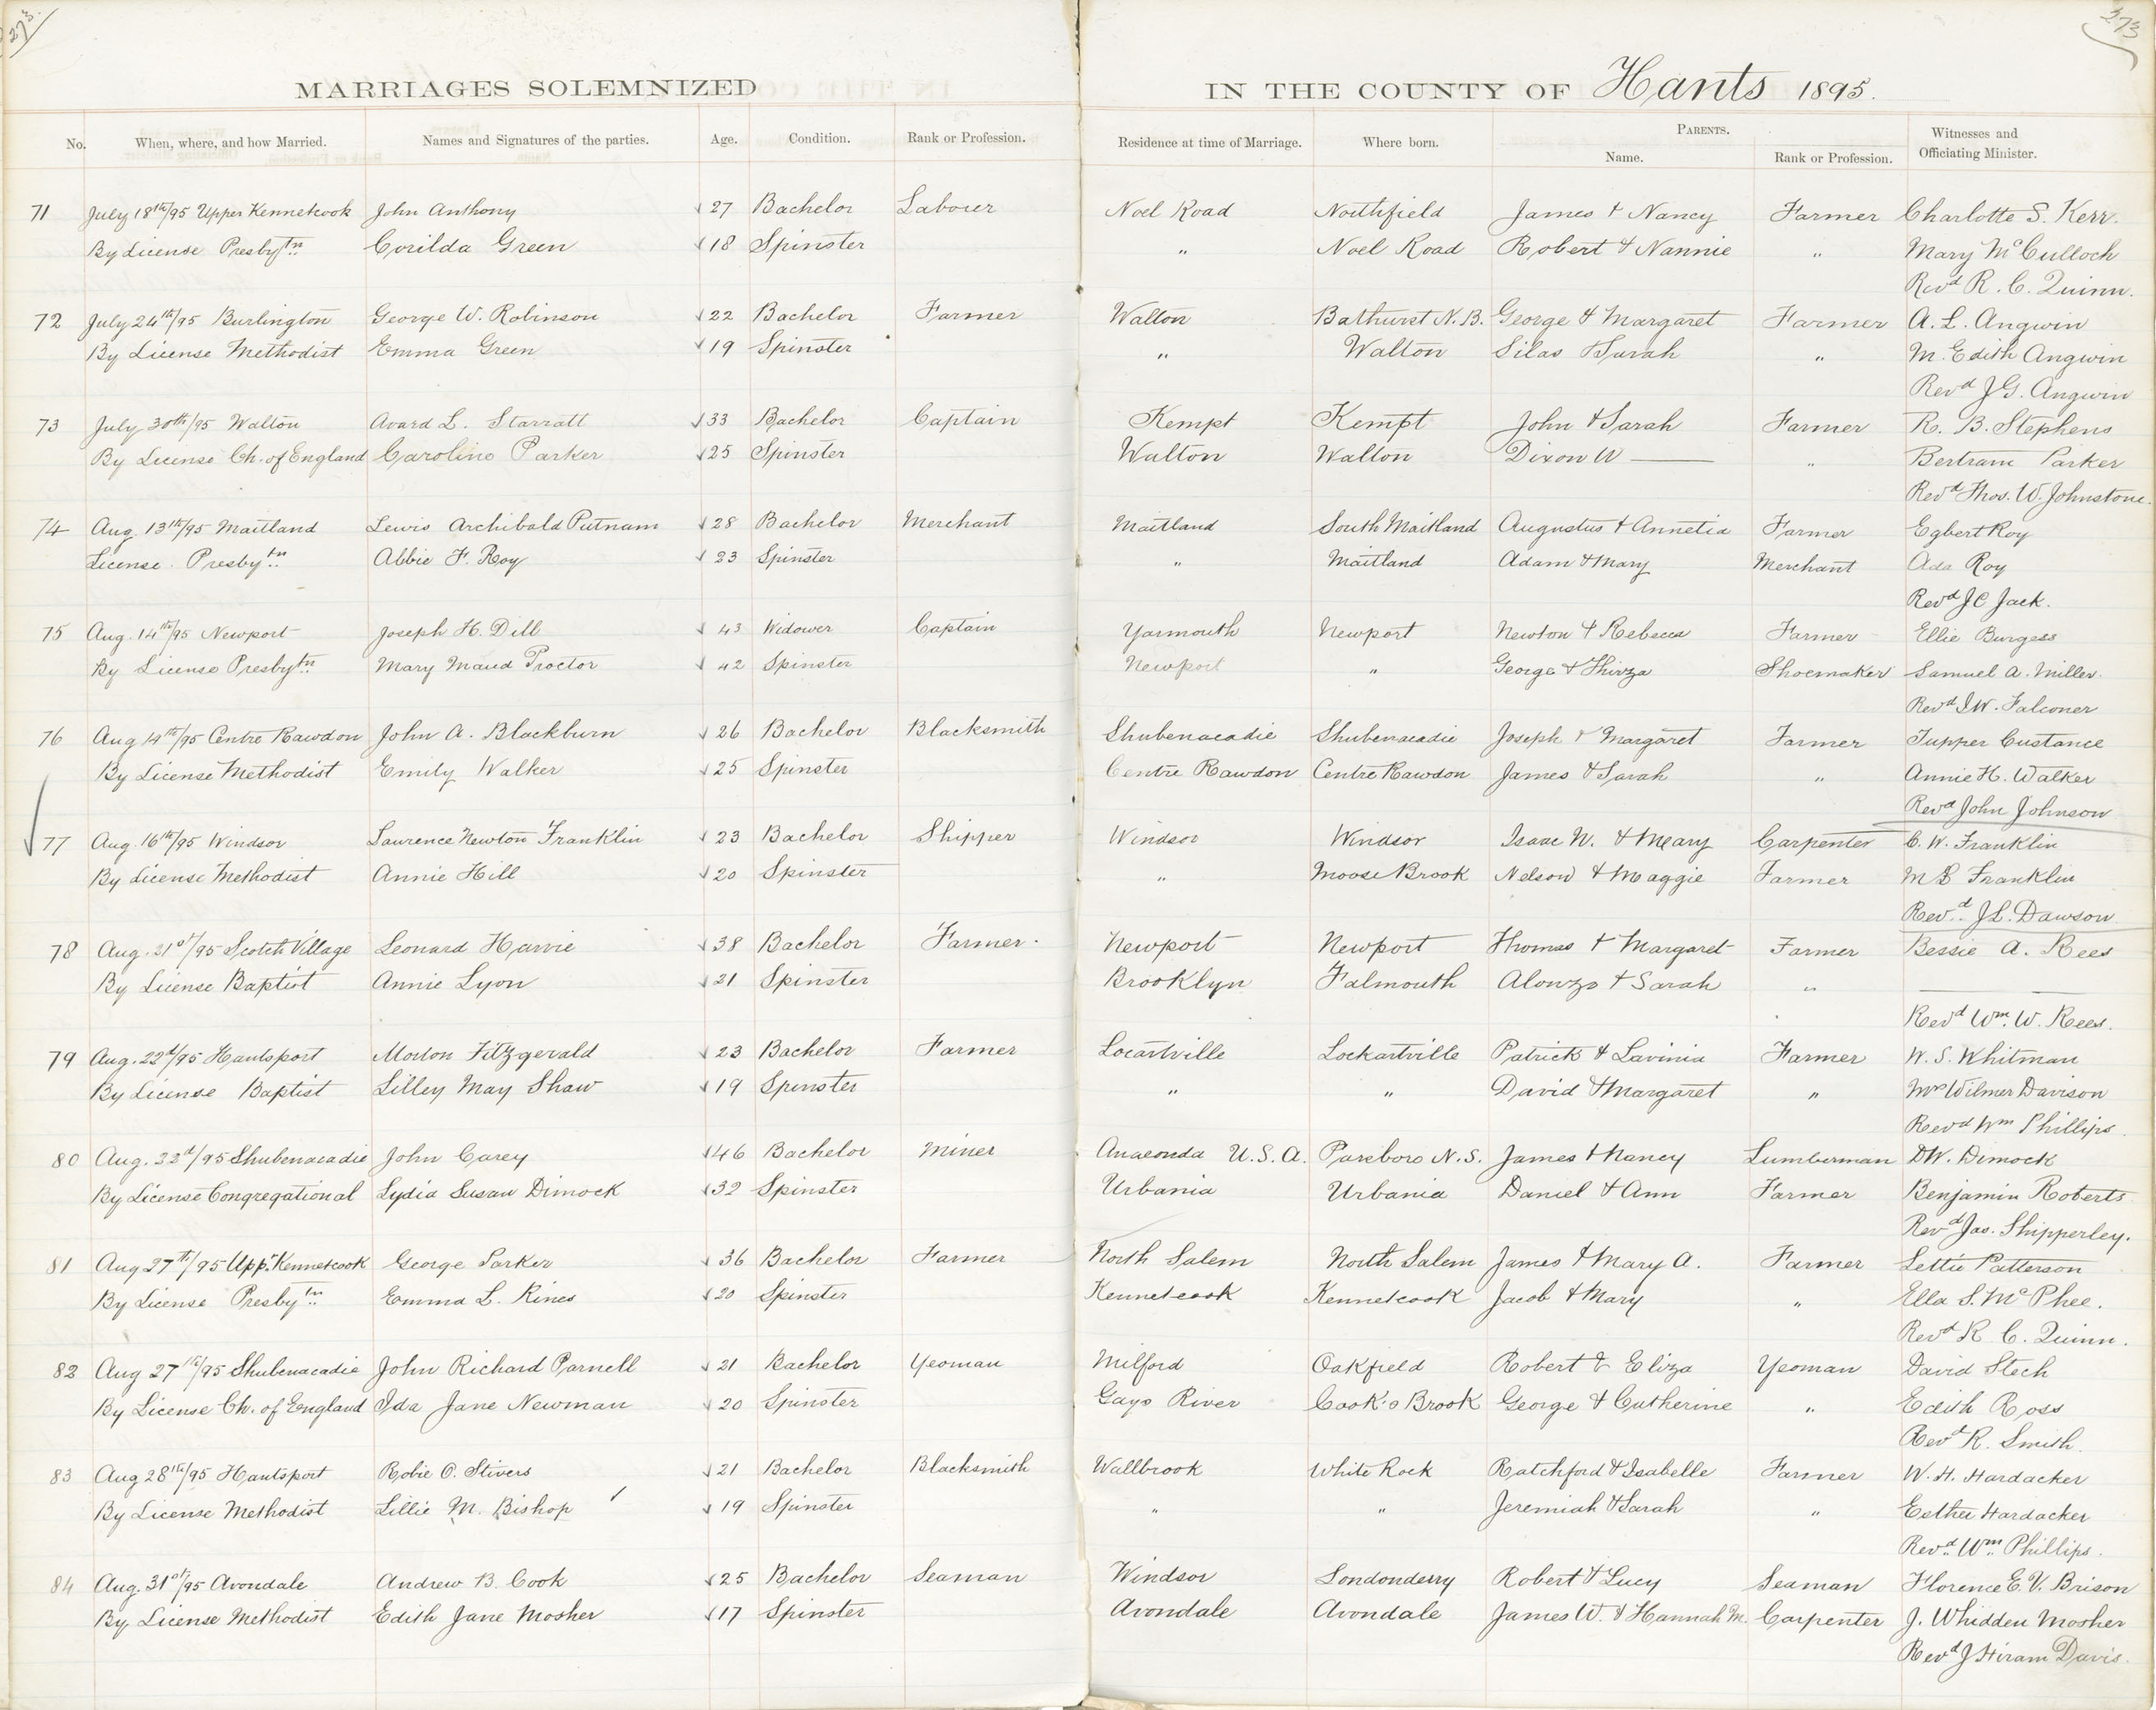 273.
273
MARRIAGES SOLEMNIZED IN THE COUNTY OF Hants 1895.
No. When, where, and how Married. Names and Signatures of the parties. Age. Condition. Rank or Profession. Residence at time of Marriage. Where born. PARENTS. Name. Rank or Profession. Witnesses and Officiating Minister.
71 July 18th/95 Upper Kennetcook John Anthony 27 Bachelor Labourer Noel Road Northfield James & Nancy Farmer Charlotte S. Kerr.
By License Presbytn Corilda Green 18 Spinster " Noel Road Robert & Nannie " Mary McCulloch
Revd R. C. Quinn.
72 July 24th/95 Burlington George W. Robinson 22 Bachelor Farmer Walton Bathurst N.B. George & Margaret Farmer A. L. Angwin
By License Methodist Emma Green 19 Spinster " Walton Silas & Sarah " M. Edith Angwin
Revd J G. Angwin
73 July 30th/95 Walton Avard L. Starratt 33 Bachelor Captain Kempt Kempt John & Sarah Farmer R. B. Stephens
By License Ch. of England Caroline Parker 25 Spinster Walton Walton Dixon W — " Bertram Parker
Revd Thos. W. Johnstone.
74 Aug. 13th/95 Maitland Lewis Archibald Putnam 28 Bachelor Merchant Maitland South Maitland Augustus & Annetia Farmer Egbert Roy
License. Presbytn Abbie F. Roy 23 Spinster " Maitland Adam & Mary Merchant Ada Roy
Revd J C Jack.
75 Aug. 14th/95 Newport Joseph H. Dill 43 Widower Captain Yarmouth Newport Newton & Rebecca Farmer Ellie Burgess
By License Presbytn Mary Maud Proctor 42 Spinster Newport " George & Thirza Shoemaker Samuel A. Miller.
Revd J W. Falconer
76 Aug 14th/95 Centre Rawdon John A. Blackburn 26 Bachelor Blacksmith Shubenacadie Shubenacadie Joseph & Margaret Farmer Tupper Custance
By License Methodist Emily Walker 25 Spinster Centre Rawdon Centre Rawdon James & Sarah " Annie H. Walker
Revd John Johnson
77 Aug. 16th/95 Windsor Laurence Newton Franklin 23 Bachelor Shipper Windsor Windsor Isaac N. & Meary Carpenter C. W. Franklin
By License Methodist Annie Hill 20 Spinster " Moose Brook Nelson & Maggie Farmer M B Franklin
Revd. J L. Dawson
78 Aug. 21st/95 Scotch Village Leonard Harvie 38 Bachelor Farmer. Newport Newport Thomas & Margaret Farmer Bessie A. Rees
By License Baptist Annie Lyon 21 Spinster Brooklyn Falmouth Alonzo & Sarah " —
Revd Wm. W. Rees.
79 Aug. 22d/95 Hantsport Morton Fitzgerald 23 Bachelor Farmer Locartville Lockartville Patrick & Lavinia Farmer W. S. Whitman
By License Baptist Lilley May Shaw 19 Spinster " " David & Margaret " Mrs Wilmer Davison
Revd Wm Phillips.
80 Aug. 22d/95 Shubenacadie John Carey 46 Bachelor Miner Anaconda U.S.A. Parsboro N.S. James & Nancy Lumberman D W. Dimock
By License Congregational Lydia Susan Dimock 32 Spinster Urbania Urbania Daniel & Ann Farmer Benjamin Roberts
Revd Jas. Shipperley.
81 Aug 27th/95 Uppr. Kennetcook George Parker 36 Bachelor Farmer North Salem North Salem James & Mary A. Farmer Lettie Patterson
By License Presbytn Emma L. Rines 20 Spinster Kennetcook Kennetcook Jacob & Mary " Ella S. McPhee.
Revd R C. Quinn.
82 Aug 27th/95 Shubenacadie John Richard Parnell 21 Bachelor Yeoman Milford Oakfield Robert & Eliza Yeoman David Stech
By License Ch. of England Ida Jane Newman 20 Spinster Gays River Cook's Brook George & Catherine " Edith Ross
Revd R. Smith.
83 Aug 28th/95 Hantsport Robie O. Stivers 21 Bachelor Blacksmith Wallbrook White Rock Ratchford & Isabelle Farmer W. H. Hardacker
By License Methodist Lillie M. Bishop 19 Spinster " " Jeremiah & Sarah " Esther Hardacker
Revd. Wm. Phillips.
84 Aug. 31st/95 Avondale Andrew B. Cook 25 Bachelor Seaman Windsor Londonderry Robert & Lucy Seaman Florence E. V. Brison
By License Methodist Edith Jane Mosher 17 Spinster Avondale Avondale James W. & Hannah M. Carpenter J. Whidden Mosher
Revd J Hiram Davis.